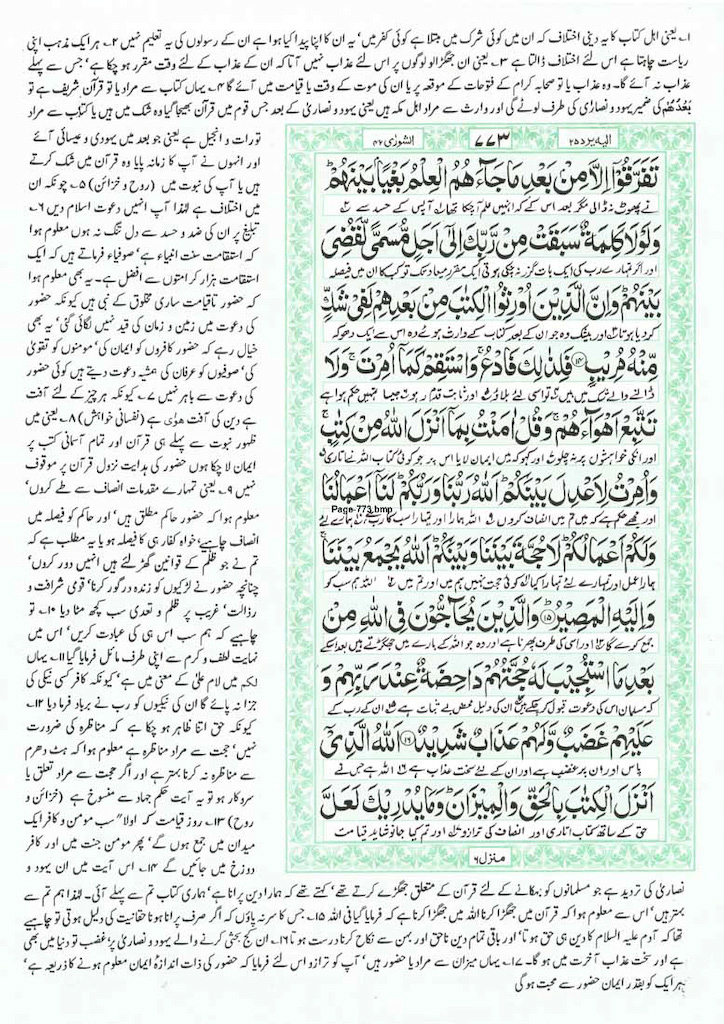 ۱۔ یعنی اہل کتاب کا یہ دینی اختلاف کہ ان میں کوئی شرک میں مبتلا ہے کوئی کفر میں' یہ ان کا اپنا پیدا کیا ہوا ہے ان کے رسولوں کی یہ تعلیم نہیں ۲۔ ہر ایک مذہب اپنی
ریاست چاہتا ہے اس لئے اختلاف ڈالتا ہے ۳۔ یعنی ان جھگڑالو لوگوں پر اس لئے عذاب نہیں آتا کہ ان کے عذاب کے لئے وقت مقرر ہو چکا ہے' جس سے پہلے
عذاب نہ آئے گا۔ وہ عذاب یا تو صحابہ کرام کے فتوحات کے موقعہ پر یا ان کی موت کے وقت یا قیامت میں آئے گا ۴۔ یہاں کتاب سے مراد یا تو قرآن شریف ہے تو
بَعْدُهُمْ کی ضمیر یہود و نصاریٰ کی طرف لوٹے گی اور وارث سے مراد اہل مکہ ہیں یعنی یہود و نصاریٰ کے بعد جس قوم میں قرآن بھیجا گیا وہ شک میں ہیں یا کتاب سے مراد
تورات و انجیل ہے یعنی جو بعد میں یہودی و عیسائی آئے
اور انہوں نے آپ کا زمانہ پایا وہ قرآن میں شک کرتے
ہیں یا آپ کی نبوت میں (روح و خزائن) ۵۔ چونکہ ان
میں اختلاف ہے لہٰذا آپ انہیں دعوت اسلام دیں ۶۔
تبلیغ پر ان کی ضد و حسد سے دل تنگ نہ ہوں معلوم ہوا
کہ استقامت سنت انبیاء ہے' صوفیاء فرماتے ہیں کہ ایک
استقامت ہزار کرامتوں سے افضل ہے۔ یہ بھی معلوم ہوا
کہ حضور تاقیامت ساری مخلوق کے نبی ہیں کیونکہ حضور
کی دعوت میں زمین و زمان کی قید نہیں لگائی گئی' یہ بھی
خیال رہے کہ حضور کافروں کو ایمان کی' مومنوں کو تقویٰ
کی' صوفیوں کو عرفان کی ہمشیہ دعوت دیتے ہیں کوئی حضور
کی دعوت سے باہر نہیں ۷۔ کیونکہ ہر چیز کے لئے آفت
ہے دین کی آفت ھوٰی ہے (نفسانی خواہش) ۸۔ یعنی میں
ظہور نبوت سے پہلے ہی قرآن اور تمام آسمانی کتب پر
ایمان لا چکا ہوں حضور کی ہدایت نزول قرآن پر موقوف
نہیں ۹۔ یعنی تمہارے مقدمات انصاف سے طے کروں'
معلوم ہوا کہ حضور حاکم مطلق ہیں' اور حاکم کو فیصلہ میں
انصاف چاہیے' خواہ کفار ہی کا فیصلہ ہو یا یہ مطلب ہے کہ
تم نے جو ظلم کے قوانین گھڑ لئے ہیں انہیں دور کروں'
چنانچہ حضور نے لڑکیوں کو زندہ درگور کرنا' قومی شرافت و
رذالت' غریب پر ظلم و تعدی سب کچھ مٹا دیا ۱۰۔ تو
چاہیے کہ ہم سب اس ہی کی عبادت کریں' اس میں
نہایت لطف و کرم سے اپنی طرف مائل فرمایا گیا ۱۱۔ یہاں
لکم میں لام علیٰ کے معنی میں ہے' کیونکہ کافر کسی نیکی کی
جزا نہ پائے گا ان کی نیکیوں کو رب نے برباد فرما دیا ۱۲۔
کیونکہ حق اتنا ظاہر ہو چکا ہے کہ مناظرہ کی ضرورت
نہیں' حجت سے مراد مناظرہ ہے معلوم ہوا کہ ہٹ دھرم
سے مناظرہ نہ کرنا بہتر ہے اور اگر حجت سے مراد تعلق یا
سروکار ہو تو یہ آیت حکم جہاد سے منسوخ ہے (خزائن و
روح) ۱۳۔ روز قیامت کہ اولا" سب مومن و کافر ایک
میدان میں جمع ہوں گے' پھر مومن جنت میں اور کافر
دوزخ میں جائیں گے ۱۴۔ اس آیت میں ان یہود و
الیہ یرد ۲۵
۷۷۳
الشورٰی ۴۲
تَفَرَّقُوْۤا اِلَّا مِنْۢ بَعْدِ مَا جَآءَهُمُ الْعِلْمُ بَغْيًۢا بَيْنَهُمْ ؕ
نے پھوٹ نہ ڈالی مگر بعد اس کے کہ انہیں علم آ چکا تھا آپس کے حسد سے
وَ لَوْ لَا كَلِمَةٌ سَبَقَتْ مِنْ رَّبِّكَ اِلٰۤى اَجَلٍ مُّسَمًّى لَّقُضِيَ
اور اگر تمہارے رب کی ایک بات گزر نہ چکی ہوتی ایک مقرر میعاد تک تو کب کا ان میں فیصلہ
بَيْنَهُمْ ؕ وَ اِنَّ الَّذِيْنَ اُوْرِثُوا الْكِتٰبَ مِنْۢ بَعْدِهِمْ لَفِيْ شَكٍّ
کر دیا ہوتا اور بیشک وہ جو ان کے بعد کتاب کے وارث ہوئے وہ اس سے ایک دھوکہ
مِّنْهُ مُرِيْبٍ ۱۴ فَلِذٰلِكَ فَادْعُ ۚ وَ اسْتَقِمْ كَمَاۤ اُمِرْتَ ۚ وَ لَا
ڈالنے والے شک میں ہیں تو اسی لئے بلاؤ اور ثابت قدم رہو جیسا تمہیں حکم ہوا ہے
تَتَّبِعْ اَهْوَآءَهُمْ ۚ وَ قُلْ اٰمَنْتُ بِمَاۤ اَنْزَلَ اللّٰهُ مِنْ كِتٰبٍ ۚ
اور ان کی خواہشوں پر نہ چلو اور کہو کہ میں ایمان لایا اس پر جو کوئی کتاب اللہ نے اتاری
وَ اُمِرْتُ لِاَعْدِلَ بَيْنَكُمْ ؕ اَللّٰهُ رَبُّنَا وَ رَبُّكُمْ ؕ لَنَاۤ اَعْمَالُنَا
Page-773.bmp
اور مجھے حکم ہے کہ میں تم میں انصاف کروں اللہ ہمارا اور تمہارا سب کا رب ہے ہمارے لئے
وَ لَكُمْ اَعْمَالُكُمْ ؕ لَا حُجَّةَ بَيْنَنَا وَ بَيْنَكُمْ ؕ اَللّٰهُ يَجْمَعُ بَيْنَنَا ۚ
ہمارا عمل اور تمہارے لئے تمہارا کیا کوئی حجت نہیں ہم میں اور تم میں اللہ ہم سب کو
وَ اِلَيْهِ الْمَصِيْرُ ۱۵ وَ الَّذِيْنَ يُحَآجُّوْنَ فِي اللّٰهِ مِنْۢ
جمع کرے گا اور اسی کی طرف پھرنا ہے اور وہ جو اللہ کے بارے میں جھگڑتے ہیں بعد اسکے
بَعْدِ مَا اسْتُجِيْبَ لَهٗ حُجَّتُهُمْ دَاحِضَةٌ عِنْدَ رَبِّهِمْ وَ
کہ مسلمان اس کی دعوت قبول کر چکے ان کی دلیل محض بے ثبات ہے ان کے رب کے
عَلَيْهِمْ غَضَبٌ وَّ لَهُمْ عَذَابٌ شَدِيْدٌ ۱۶ اَللّٰهُ الَّذِيْۤ
پاس اور ان پر غضب ہے اور ان کے لئے سخت عذاب ہے اللہ ہے جس نے
اَنْزَلَ الْكِتٰبَ بِالْحَقِّ وَ الْمِيْزَانَ ؕ وَ مَا يُدْرِيْكَ لَعَلَّ
حق کے ساتھ کتاب اتاری اور انصاف کی ترازو اور تم کیا جانو شاید قیامت
منزل ۶
نصاریٰ کی تردید ہے جو مسلمانوں کو بہکانے کے لئے قرآن کے متعلق جھگڑے کرتے تھے' کہتے تھے کہ ہمارا دین پرانا ہے' ہماری کتاب تم سے پہلے آئی۔ لہٰذا ہم تم سے
بہتر ہیں' اس سے معلوم ہوا کہ قرآن میں جھگڑا کرنا اللہ میں جھگڑا کرنا ہے کہ فرمایا گیا فی اللہ ۱۵۔ جس کا سر نہ پاؤں کہ اگر صرف پرانا ہونا حقانیت کی دلیل ہوتی تو چاہیے
تھا کہ آدم علیہ السلام کا دین ہی حق ہوتا' اور باقی تمام دین ناحق اور بہن سے نکاح کرنا درست ہوتا ۱۶۔ ان کج بحثی کرنے والے یہود و نصاریٰ پر' غضب تو دنیا میں بھی
ہے اور سخت عذاب آخرت میں ہو گا۔ ۱۷۔ یہاں میزان سے مراد یا حضور ہیں' آپ کو ترازو اس لئے فرمایا کہ حضور کی ذات اندازۂ ایمان معلوم ہونے کا ذریعہ ہے'
ہر ایک کو بقدر ایمان حضور سے محبت ہو گی